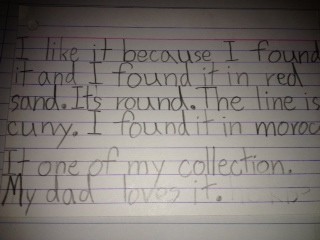 I like it because I found
it and I found it in red
sand. Its round. The line is
curvy. I found it in moroc
It one of my collection.
My dad loves it.